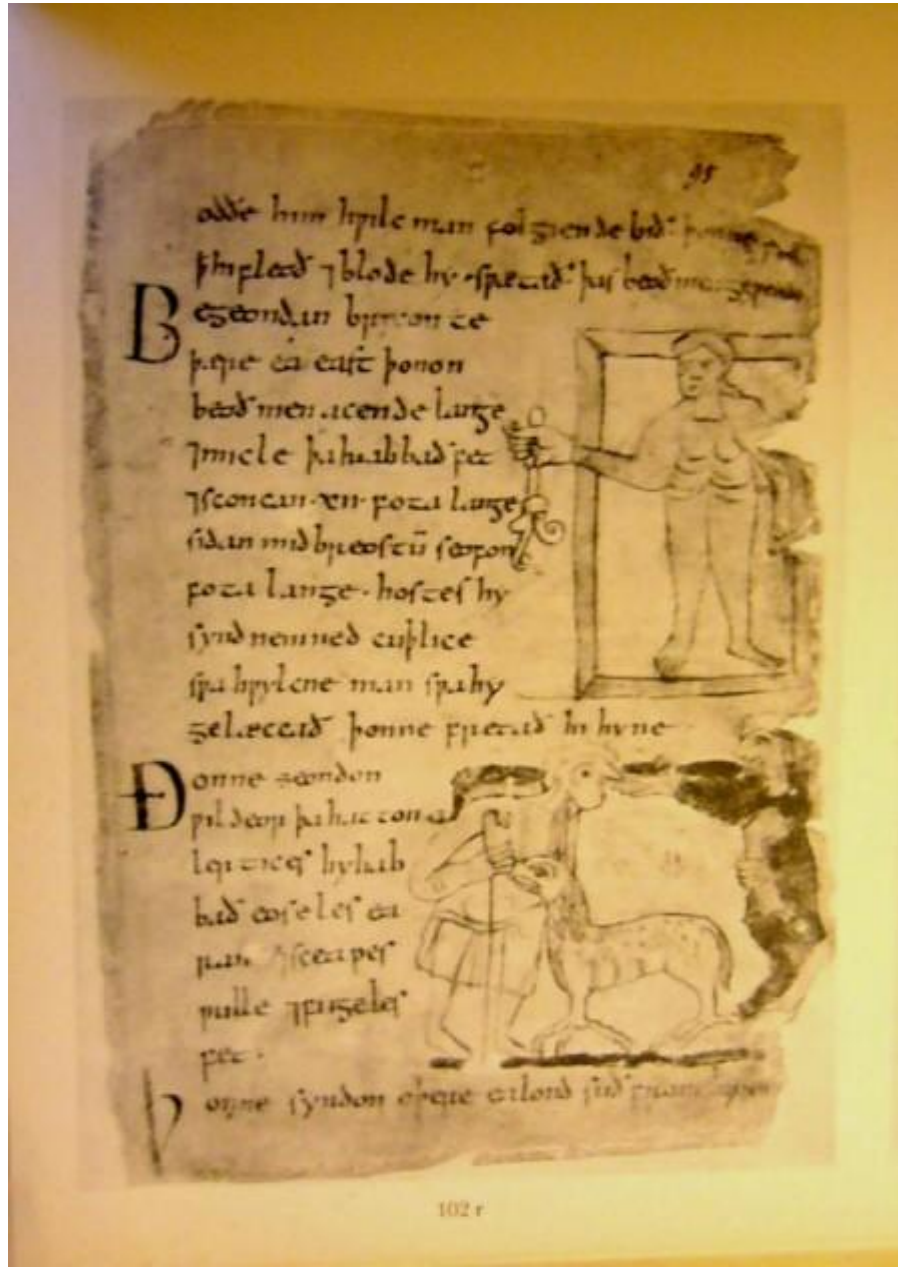 95
oððe him hƿilc man folgiende bið· þonne
þ hi fleoð ⁊ blode hy sƿætað· þas beoð men
Begeondan brixonte
þære éa east þonon
beoð men acende lange
⁊ micle þa habbað fet
⁊ sconcan ·xii· fota lange
sidan mid breostū seofon
fota lange· hostes hy
synd nemned cuþlice
sƿa hƿylcne man sƿa hy
gelæccað þonne fretað hi hyne
Ðonne seondon
ƿildeor þa hatton
hy hab
bað eoseles ea
ran ⁊ sceapes
ƿulle ⁊ fugeles
fet·
Þonne syndon oþere ealond suð fram
102 r